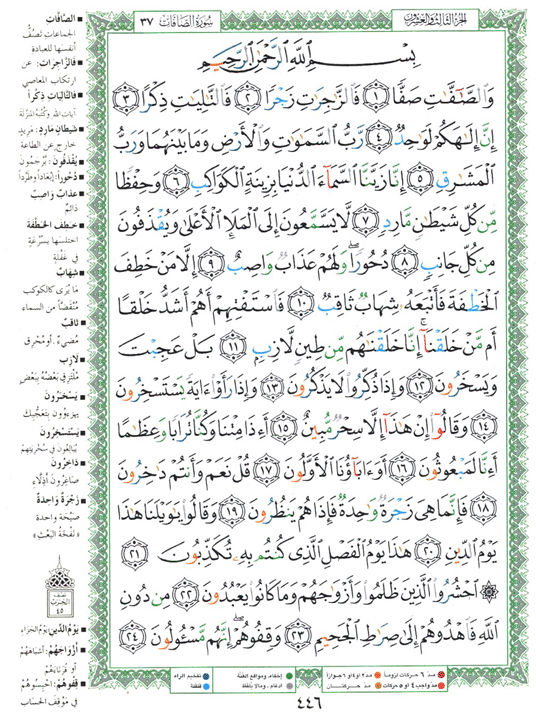 الجزء الثالث والعشرون
سورة الصافات ٣٧
بِسْمِ ٱللَّهِ ٱلرَّحْمَٰنِ ٱلرَّحِيمِ
وَٱلصَّٰٓفَّٰتِ صَفًّا ١ فَٱلزَّٰجِرَٰتِ زَجْرًا ٢ فَٱلتَّٰلِيَٰتِ ذِكْرًا ٣
إِنَّ إِلَٰهَكُمْ لَوَٰحِدٌ ٤ رَّبُّ ٱلسَّمَٰوَٰتِ وَٱلْأَرْضِ وَمَا بَيْنَهُمَا وَرَبُّ
ٱلْمَشَٰرِقِ ٥ إِنَّا زَيَّنَّا ٱلسَّمَآءَ ٱلدُّنْيَا بِزِينَةٍ ٱلْكَوَاكِبِ ٦ وَحِفْظًا
مِّن كُلِّ شَيْطَٰنٍ مَّارِدٍ ٧ لَّا يَسَّمَّعُونَ إِلَى ٱلْمَلَإِ ٱلْأَعْلَىٰ وَيُقْذَفُونَ
مِن كُلِّ جَانِبٍ ٨ دُحُورًا ۖ وَلَهُمْ عَذَابٌ وَاصِبٌ ٩ إِلَّا مَنْ خَطِفَ
ٱلْخَطْفَةَ فَأَتْبَعَهُۥ شِهَابٌ ثَاقِبٌ ١٠ فَٱسْتَفْتِهِمْ أَهُمْ أَشَدُّ خَلْقًا
أَم مَّنْ خَلَقْنَآ ۚ إِنَّا خَلَقْنَٰهُم مِّن طِينٍ لَّازِبٍۭ ١١ بَلْ عَجِبْتَ
وَيَسْخَرُونَ ١٢ وَإِذَا ذُكِّرُوا۟ لَا يَذْكُرُونَ ١٣ وَإِذَا رَأَوْا۟ ءَايَةً يَسْتَسْخِرُونَ
١٤ وَقَالُوٓا۟ إِنْ هَٰذَآ إِلَّا سِحْرٌ مُّبِينٌ ١٥ أَءِذَا مِتْنَا وَكُنَّا تُرَابًا وَعِظَٰمًا
أَءِنَّا لَمَبْعُوثُونَ ١٦ أَوَءَابَآؤُنَا ٱلْأَوَّلُونَ ١٧ قُلْ نَعَمْ وَأَنتُمْ دَٰخِرُونَ
١٨ فَإِنَّمَا هِىَ زَجْرَةٌ وَٰحِدَةٌ فَإِذَا هُمْ يَنظُرُونَ ١٩ وَقَالُوا۟ يَٰوَيْلَنَا هَٰذَا
يَوْمُ ٱلدِّينِ ٢٠ هَٰذَا يَوْمُ ٱلْفَصْلِ ٱلَّذِى كُنتُم بِهِۦ تُكَذِّبُونَ ٢١
۞ ٱحْشُرُوا۟ ٱلَّذِينَ ظَلَمُوا۟ وَأَزْوَٰجَهُمْ وَمَا كَانُوا۟ يَعْبُدُونَ ٢٢ مِن دُونِ
ٱللَّهِ فَٱهْدُوهُمْ إِلَىٰ صِرَٰطِ ٱلْجَحِيمِ ٢٣ وَقِفُوهُمْ ۖ إِنَّهُم مَّسْـُٔولُونَ ٢٤
الصافات
الجماعات تصف
أنفسها للعبادة
فالزاجرات: عن
ارتكاب المعاصي
فالتاليات ذكراً
آيات الله وكتبه المنزلة
شيطان مارد: مريد
خارج عن الطاعة
يقذفون: يرجمون
دحوراً: إبعاداً وطرداً
عذاب واصب
دائم
خطف الخطفة
اختلسها بسرعة
في غفلة
شهاب
ما يرى كالكوكب
منقضاً من السماء
ثاقب
مضيء، أو محرق
لازب
ملتزق بعضه ببعض
يسخرون
يهزءون بتعجبك
يستسخرون
يبالغون في سخريتهم
داخرون
صاغرون أذلاء
زجرة واحدة
صيحة واحدة
«نفخة البعث»
نصف
الحزب
٤٥
يوم الدين: يوم الجزاء
أزواجهم: أشباههم
أو قرناءهم
قفوهم: احبسوهم
في موقف الحساب
مد ٦ حركات لزوماً مد ٢ أو ٤ أو ٦ جوازاً إخفاء، ومواقع الغنة تفخيم الراء
مد واجب ٤ أو ٥ حركات مد حركتان إدغام، وما لا يلفظ قلقلة
٤٤٦